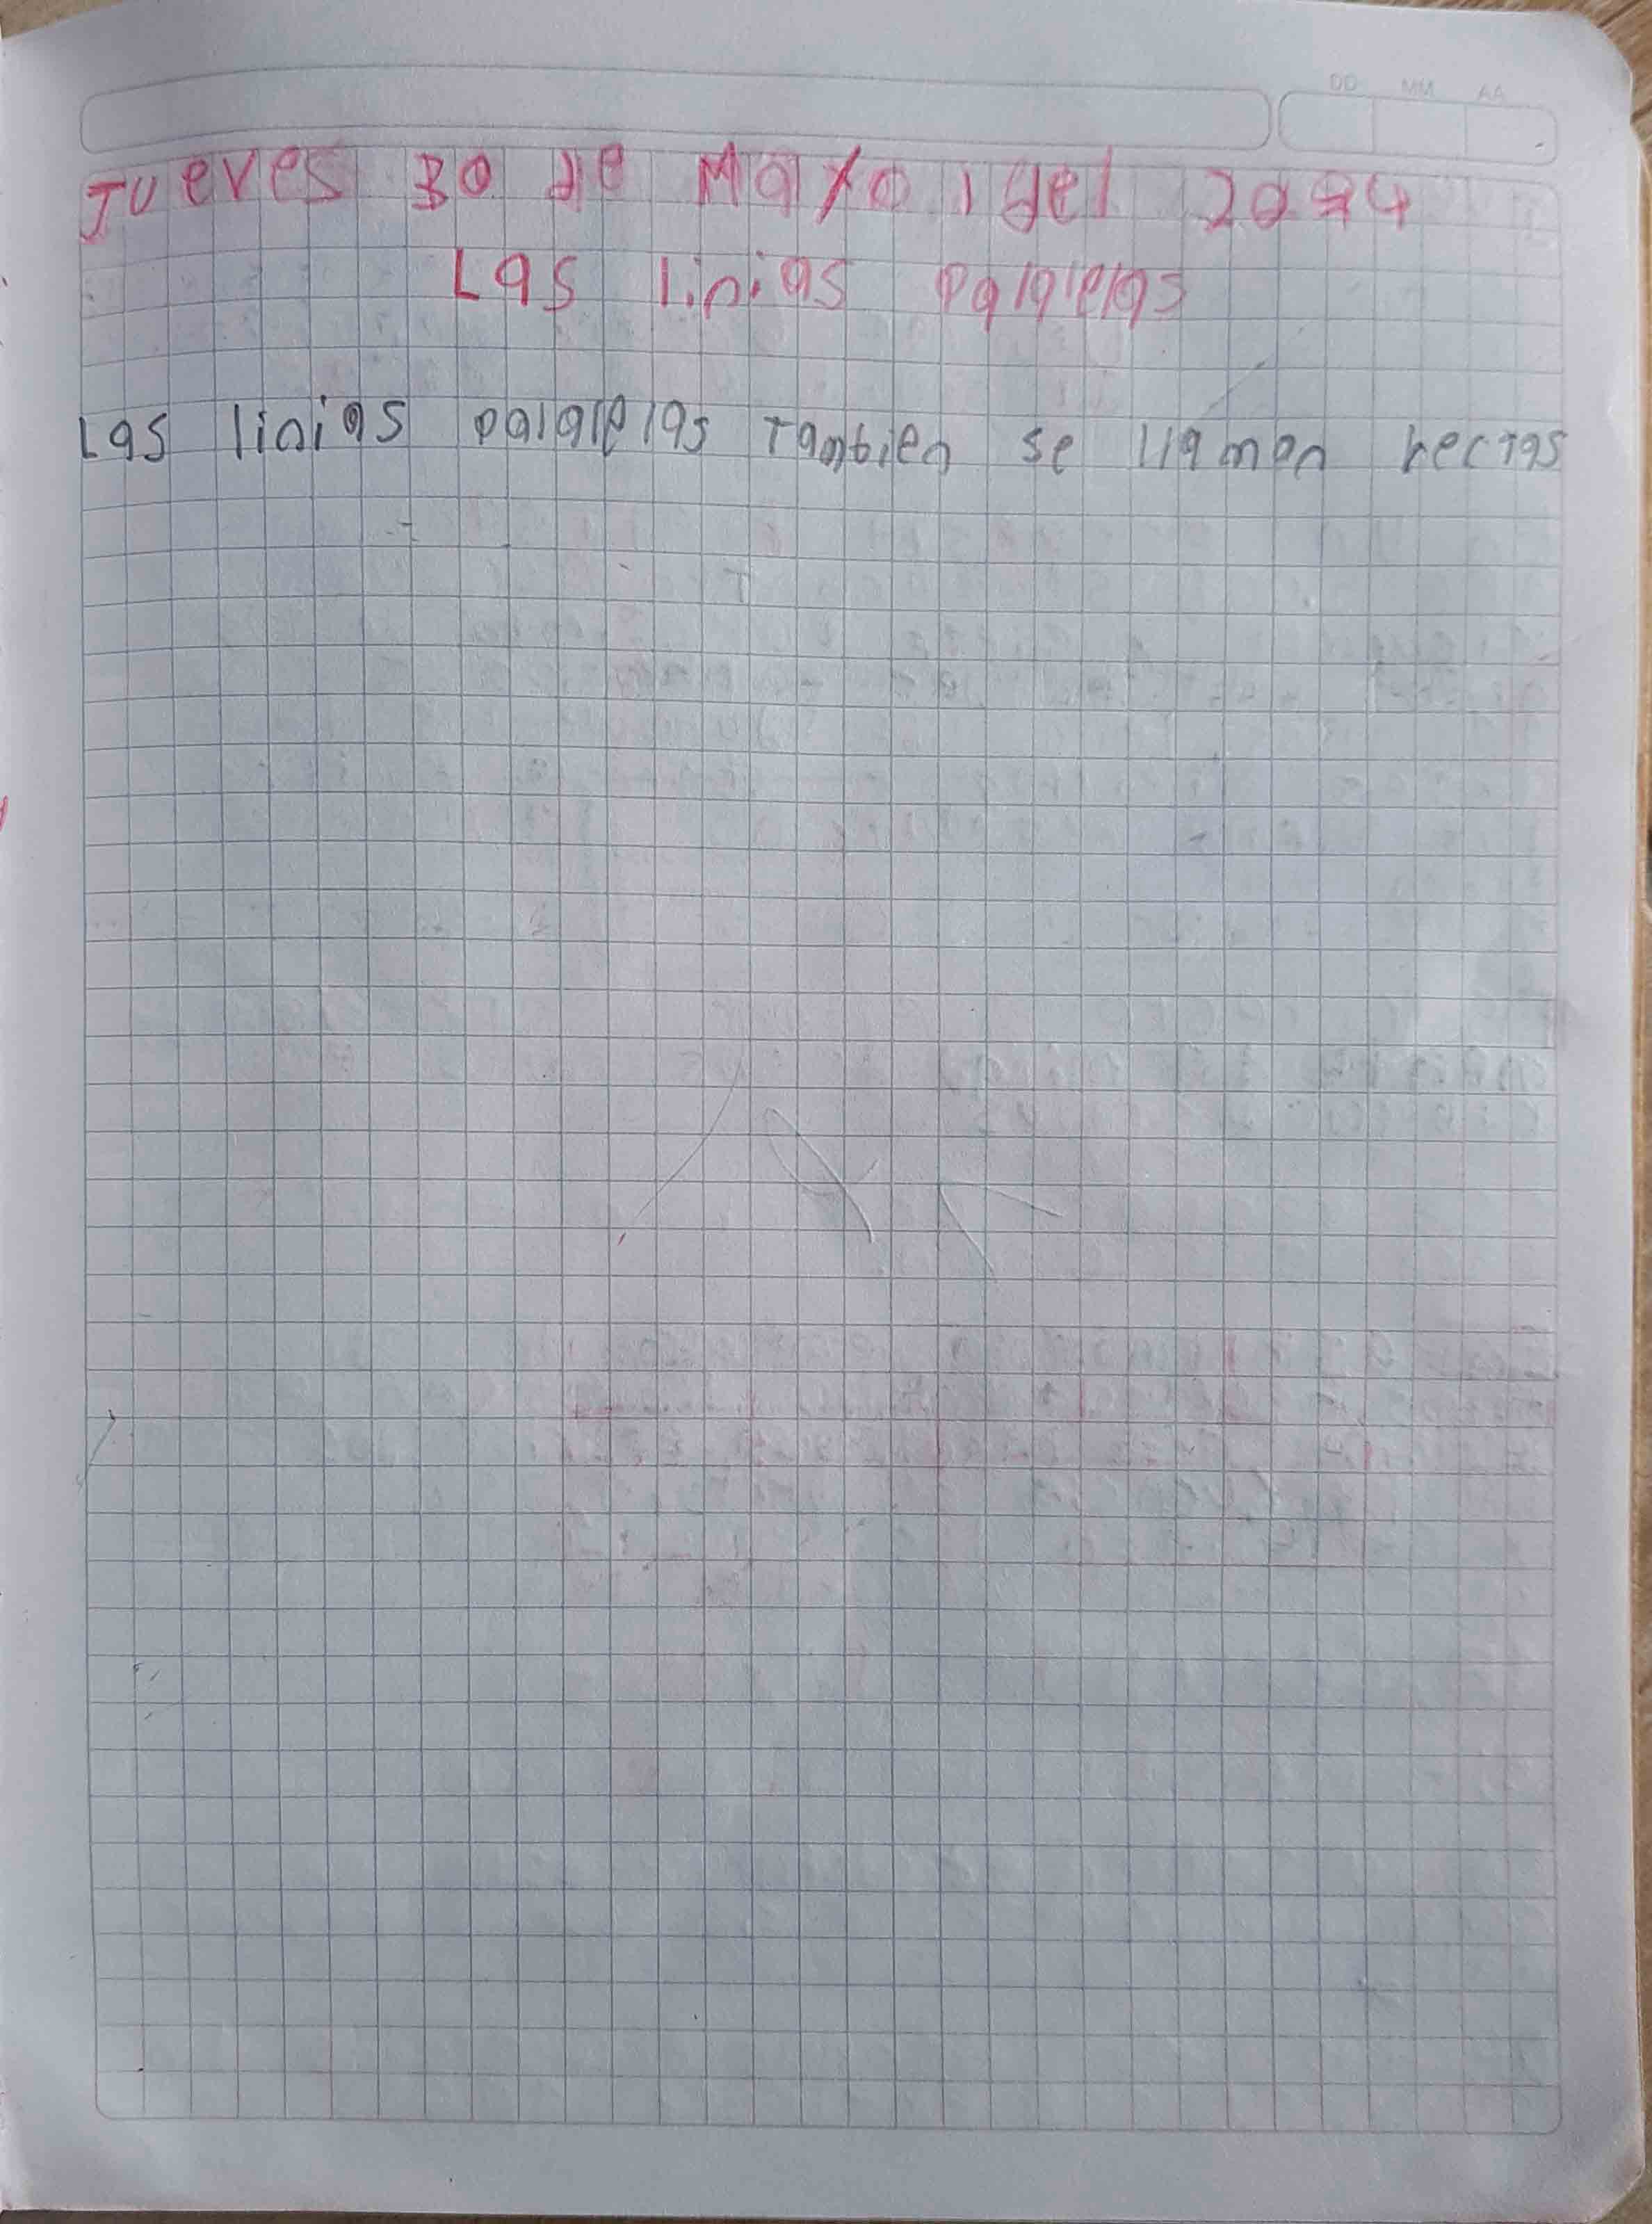 DD MM AA
Jueves 30 de Mayo del 2024
Las linias paralelas
Las linias paralelas tanbien se llaman rectas